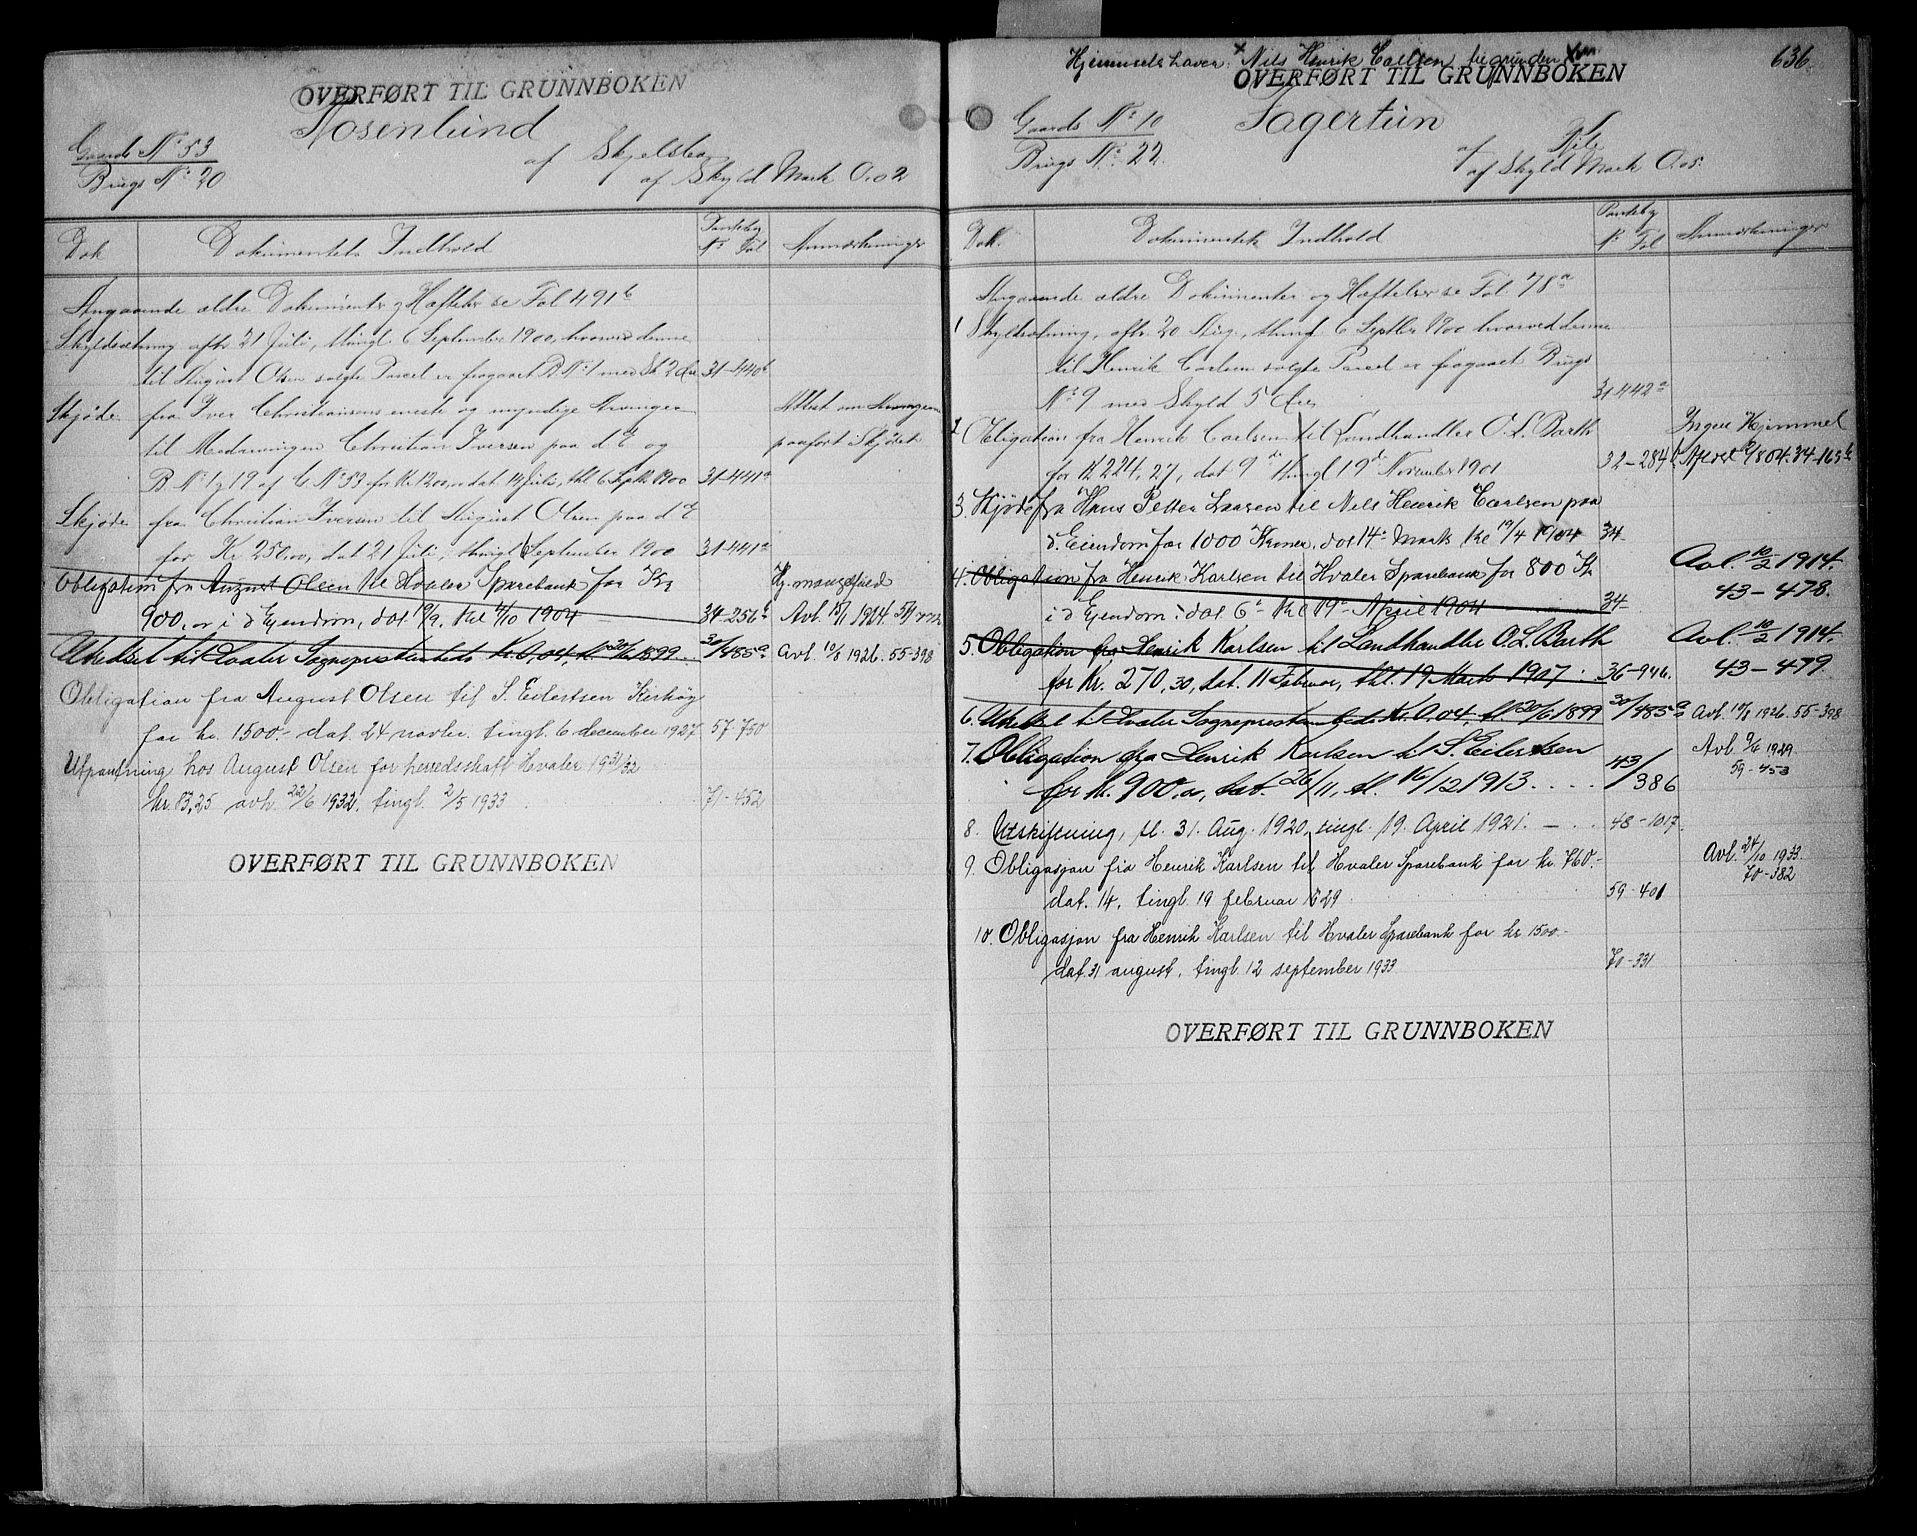 OVERFØRT TIL GRUNNBOKEN
Rosenlund
Gaards No 53
Brugs No 20
af Skjelsbo
af Skyld Mark 0.02
Dok
Dokumentets Indhold
Pantebog
No Fol
Anmærkninger
Angaaende ældre Dokumenter og Hæftelser se Fol 491b
Skyldsætning afh. 21 Juli, thingl. 6 September 1900, hvorved denne
til August Olsen solgte Parcel er fragaaet B No 1 med Sk 2 Øre 31-440b
Skjøde fra Iver Christiansens eneste og myndige Arvinger
til Medarvingen Christian Iversen paa d E og
B No 1 og 19 af G No 53 for Kr 1200, dat 14 Juli, thl 6 Septb 1900 31-441a
Attest om Arvingerne
paaført Skjødet
Skjøde fra Christian Iversen til August Olsen paa d E
for Kr 250.00, dat 21 Juli, thingl 6 September 1900 31-441a
Obligation fra August Olsen til Hvaler Sparebank for Kr
900.00 i d Ejendom, dat. 19/9. thl 4/10 1904 34-256b
Hj. mangefuld
Avl. 15/1 1924.
Utkedsel til Hvaler Sognepræstembede Kr. 0,04, tl. 30/6 1899. 30/485a Avl. 10/8 1926. 55-398
Obligation fra August Olsen til S. Eilertsen Kirkøy
for kr. 1500.- dat. 24 novbr. tingl. 6 december 1927 57-750
Utpantning hos August Olsen for herredsskatt Hvaler 1931/32
kr. 83,25 avh. 22/6 1932, tingl. 2/5 1933. 71-452
OVERFØRT TIL GRUNNBOKEN
636
Hjemmelshaver: x Nils Henrik Carlsen til grunden
OVERFØRT TIL GRUNNBOKEN
Fagertun
Gaards No 10
Brugs No 22.
af Kile
af Skyld Mark 0.05.
Dok.
Dokumentets Indhold
Pantebog
No Fol
Anmærkninger
Angaaende ældre Dokumenter og Hæftelser se Fol 78a
1 Skyldsætning, afh. 20 Aug., thingl 6 Septbr 1900 hvorved denne
til Henrik Carlsen solgte Parcel er fragaaet Brugs
No 9 med Skyld 5 Øre 31-442a
2 Obligation fra Henrik Carlsen til Landhandler O. L. Barth
for Kr 224,27, dat 9de thingl 19de November 1901 32-284b
Ingen Hjemmel
Aflæst 2/8 04. 34-163b
3. Skjøde fra Hans Petter Larsen til Nils Henrik Carlsen paa
d. Eiendom for 1000 Kroner, dat 14de Marts thl 19/4 1904 34-
4. Obligation fra Henrik Karlsen til Hvaler Sparebank for 800 Kr
i d Ejendom: dat. 6te thl 19de April 1904 34-
Avl. 10/2 1914.
43-478.
5. Obligation fra Henrik Karlsen til Landhandler O. L. Barth
for Kr. 270,30, dat. 11 Februar, thl. 19 Marts 1907. 36-946.
Avl. 10/2 1914.
43-479.
6. Utkedsel til Hvaler Sognepræstembede Kr. 0,04, tl. 30/6 1899 30/485a Avl. 10/8 1926. 55-398
7. Obligation fra Henrik Karlsen til S. Eilertsen
for Kr. 900.00, dat. 26/11, tl. 16/12 1913.... 43/386
Avl. 9/6 1929
59-453
8. Utskiftning, sl. 31. Aug. 1920, tingl. 19. April 1921. 48-1017.
9. Obligasjon fra Henrik Karlsen til Hvaler Sparebank for kr. 760.-
dat. 14. tingl. 19 februar 1929. 59-401
Avl. 24/10 1933.
70-382
10. Obligasjon fra Henrik Karlsen til Hvaler Sparebank for kr 1500.-
dat. 31 august, tingl. 12 september 1933 70-331
OVERFØRT TIL GRUNNBOKEN